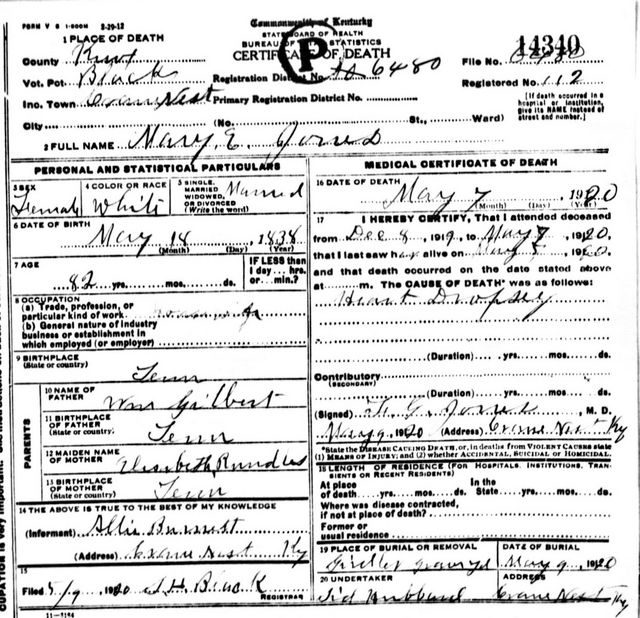 FORM V S 1-500M 8-29-12
Commonwealth of Kentucky
STATE BOARD OF HEALTH
BUREAU OF STATISTICS
CERTIFICATE OF DEATH
P
1 PLACE OF DEATH
County Knox
Vot. Pct Black
Inc. Town Crane Nest
City (No. St., Ward)
Registration District No. 6480
Primary Registration District No.
14340
File No.
Registered No. 112
[If death occurred in a hospital or institution, give its NAME instead of street and number.]
2 FULL NAME Mary E. Jones
PERSONAL AND STATISTICAL PARTICULARS
3 SEX Female
4 COLOR OR RACE White
5 SINGLE, MARRIED WIDOWED, OR DIVORCED (Write the word) Married
6 DATE OF BIRTH May 18, 1838
(Month) (Day) (Year)
7 AGE 82 yrs. mos. ds.
IF LESS than 1 day ... hrs. or ... min.?
8 OCCUPATION
(a) Trade, profession, or particular kind of work
(b) General nature of industry business or establishment in which employed (or employer)
9 BIRTHPLACE (State or country) Tenn
PARENTS
10 NAME OF FATHER Wm Gilbert
11 BIRTHPLACE OF FATHER (State or country) Tenn
12 MAIDEN NAME OF MOTHER Elisabeth
13 BIRTHPLACE OF MOTHER (State or country) Tenn
14 THE ABOVE IS TRUE TO THE BEST OF MY KNOWLEDGE
(Informant)
(Address) Crane Nest Ky
15
Filed 5/9 1920 Black
REGISTRAR
11-3184
MEDICAL CERTIFICATE OF DEATH
16 DATE OF DEATH May 7 1920
(Month) (Day) (Year)
17 I HEREBY CERTIFY, That I attended deceased
from Dec 8, 1919 to May 1920
that I last saw her alive on May 5 19
and that death occurred on the date stated above
at m. The CAUSE OF DEATH* was as follows:
Heart Dropsey
(Duration) yrs. mos. ds.
Contributory (SECONDARY)
(Duration) yrs. mos. ds.
(Signed) Jones, M. D.
May 9 1920 (Address) Crane Nest Ky
*State the DISEASE CAUSING DEATH, or, in deaths from VIOLENT CAUSES state (1) MEANS OF INJURY; and (2) whether ACCIDENTAL, SUICIDAL or HOMICIDAL.
18 LENGTH OF RESIDENCE (FOR HOSPITALS, INSTITUTIONS, TRANSIENTS OR RECENT RESIDENTS)
At place of death yrs. mos. ds.
In the State yrs. mos. ds.
Where was disease contracted, if not at place of death?
Former or usual residence
19 PLACE OF BURIAL OR REMOVAL
DATE OF BURIAL May 9, 1920
20 UNDERTAKER Sid Hubbard
ADDRESS Crane Nest Ky